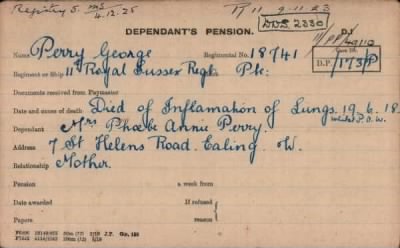 Registry 5. 4.12.25
R 11 9-11-23
DEPENDANT'S PENSION.
DDS 2330
D.1
Name Perry George Regimental No. 18741
Regiment or Ship 11 Royal Sussex Regt. Pte:
D.P. 173 P
Documents received from Paymaster
Date and cause of death: Died of Inflamation of Lungs. 19.6.18.
whilst P.O.W.
Dependant Mrs Phœbe Annie Perry.
Address 7 St Helens Road. Ealing. W.
Relationship Mother.
Pension a week from
Date awarded If refused
Papers reason